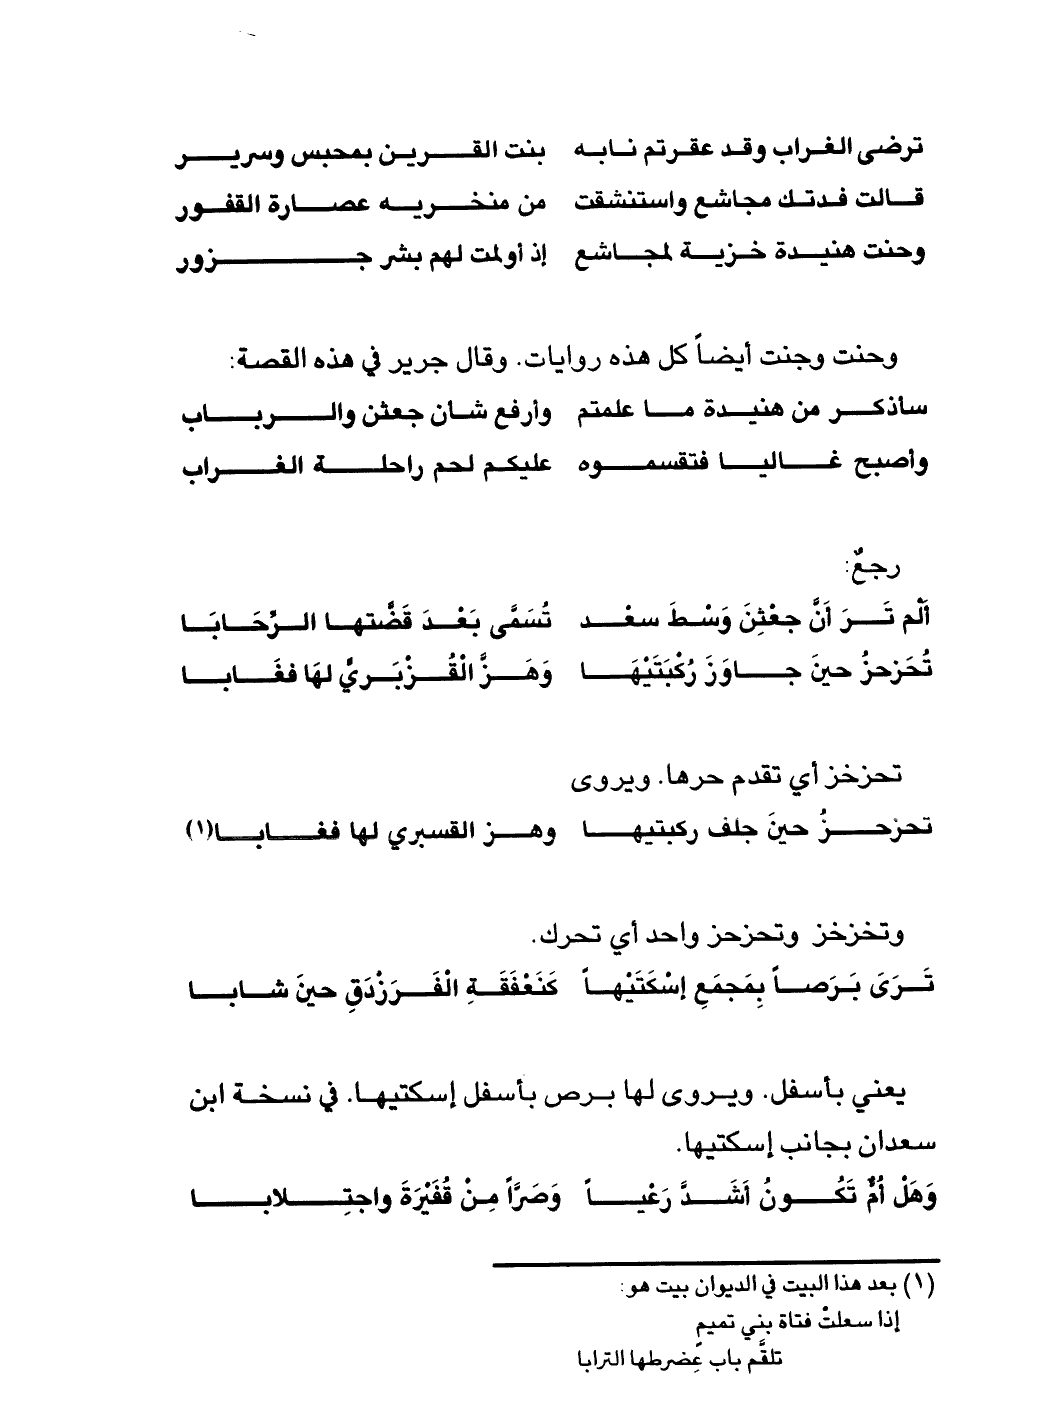 ترضى الغراب وقد عقرتم نابه بنت القرين بمحبس وسرير
قالت فدتك مجاشع واستنشقت من منخريه عصارة القفور
وحنت هنيدة خزية لمجاشع إذ أولمت لهم بشر جزور
وحنت وجنت أيضاً كل هذه روايات. وقال جرير في هذه القصة:
سأذكر من هنيدة ما علمتم وأرفع شان جعثن والرباب
وأصبح غاليا فتقسموه عليكم لحم راحلة الغراب
رجعٌ:
أَلْم تَرَ أَنَّ جعْثِنَ وَسْطَ سعْد تُسَمَّى بَعْدَ قَضَّتها الرِّحَابَا
تُحَزحزُ حينَ جاوَزَ رُكْبَتَيْهَا وَهَزَّ الْقُزْبَريُّ لهَا فغَابا
تحزخز أي تقدم حرها. ويروى
تحزحزُ حينَ جلف ركبتيها وهز القسبري لها فغابا(١)
وتخزخز وتحزحز واحد أي تحرك.
تَرَىَ بَرَصاً بِمَجمَعِ إسْكَتَيْهاً كَنَعْفَقَةِ الْفَرَزْدَقِ حينَ شابا
يعني بأسفل. ويروى لها برص بأسفل إسكتيها. في نسخة ابن
سعدان بجانب إسكتيها.
وَهَلْ أُمٌّ تَكُونُ أَشَدَّ رَعْياً وَصَرَّاً مِنْ قُفَيْرَةَ واجتِلابا
(١) بعد هذا البيت في الديوان بيت هو:
إذا سعلتْ فتاة بني تميمٍ
تلقَّم باب عِضرطها الترابا